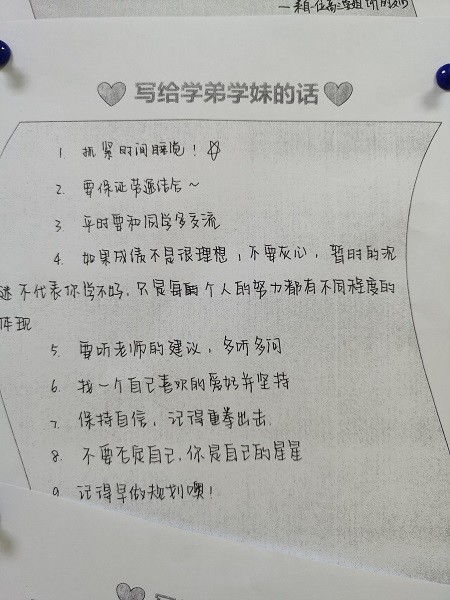 写给学弟学妹的话
1. 抓紧时间睡觉！
2. 要保证劳逸结合~
3. 平时要和同学多交流
4. 如果成绩不是很理想，不要灰心，暂时的沉
迷不代表你学不好，只是每个人的努力都有不同程度的
体现
5. 要听老师的建议，多听多问
6. 找一个自己喜欢的爱好并坚持
7. 保持自信，记得重拳出击
8. 不要否定自己，你是自己的星星
9. 记得早做规划噢！